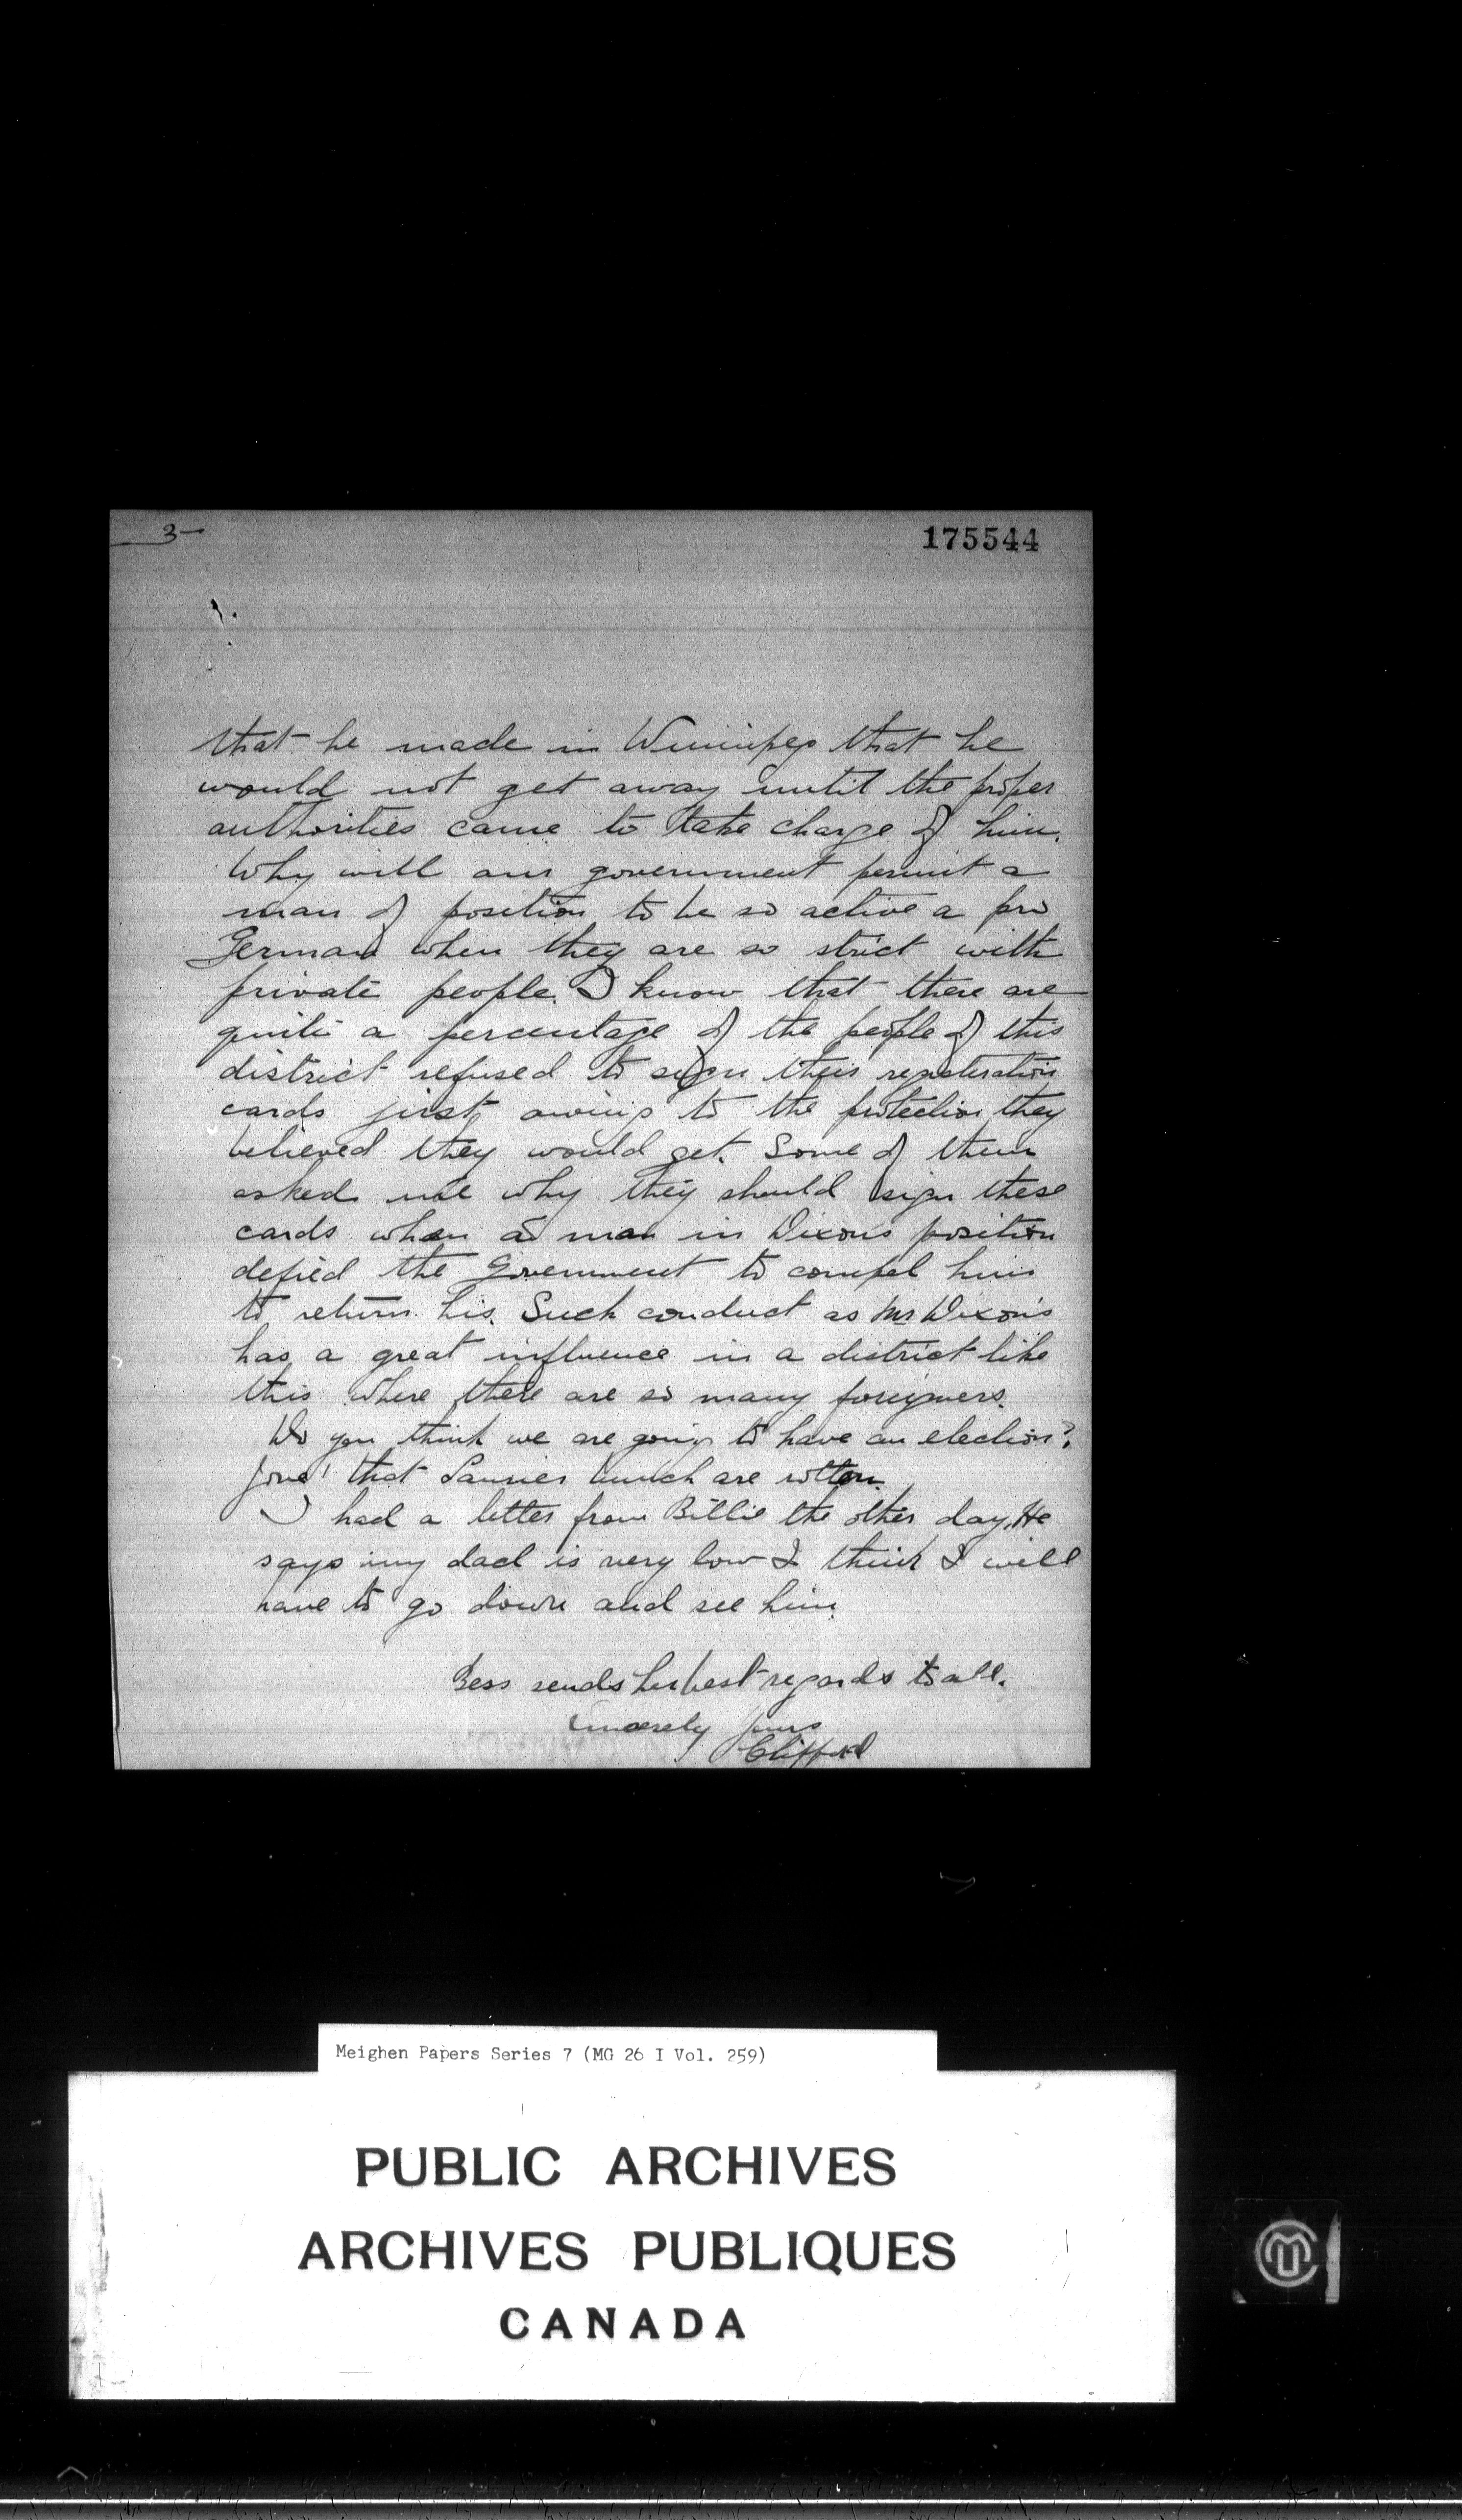 3-
175544
that he made in Winnipeg that he
would not get away until the proper
authorities came to take charge of him.
Why will our government permit a
man of position to be so active a pro
German when they are so strict with
private people. I know that there are
quite a percentage of the people of this
district refused to sign their registration
cards just owing to the protection they
believed they would get. Some of them
asked me why they should sign these
cards when a man in Dixon's position
defied the Government to compel him
to return his. Such conduct as Mr Dixon's
has a great influence in a district like
this where there are so many foreigners.
Do you think we are going to have an election?
Jove! that Laurier bunch are rotten.
I had a letter from Billie the other day. He
says my dad is very low I think I will
have to go down and see him.
Bess sends her best regards to all.
Sincerely yours
Clifford
Meighen Papers Series 7 (MG 26 I Vol. 259)
PUBLIC ARCHIVES
ARCHIVES PUBLIQUES
CANADA